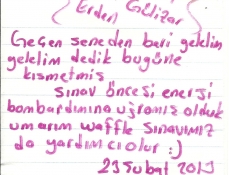 Erden Gülizar
Geçen seneden beri gelelim
gelelim dedik bugüne
kısmetmiş
sınav öncesi enerji
bombardımına uğramış olduk
umarım waffle sınavımız
da yardımcı olur :)
23 Şubat 2013